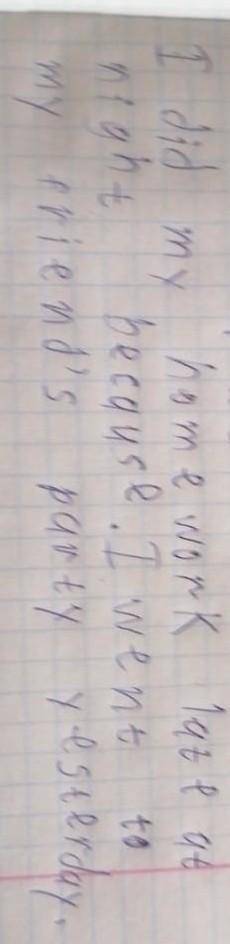 I did my homework late at
night because. I went to
my friend's party yesterday.